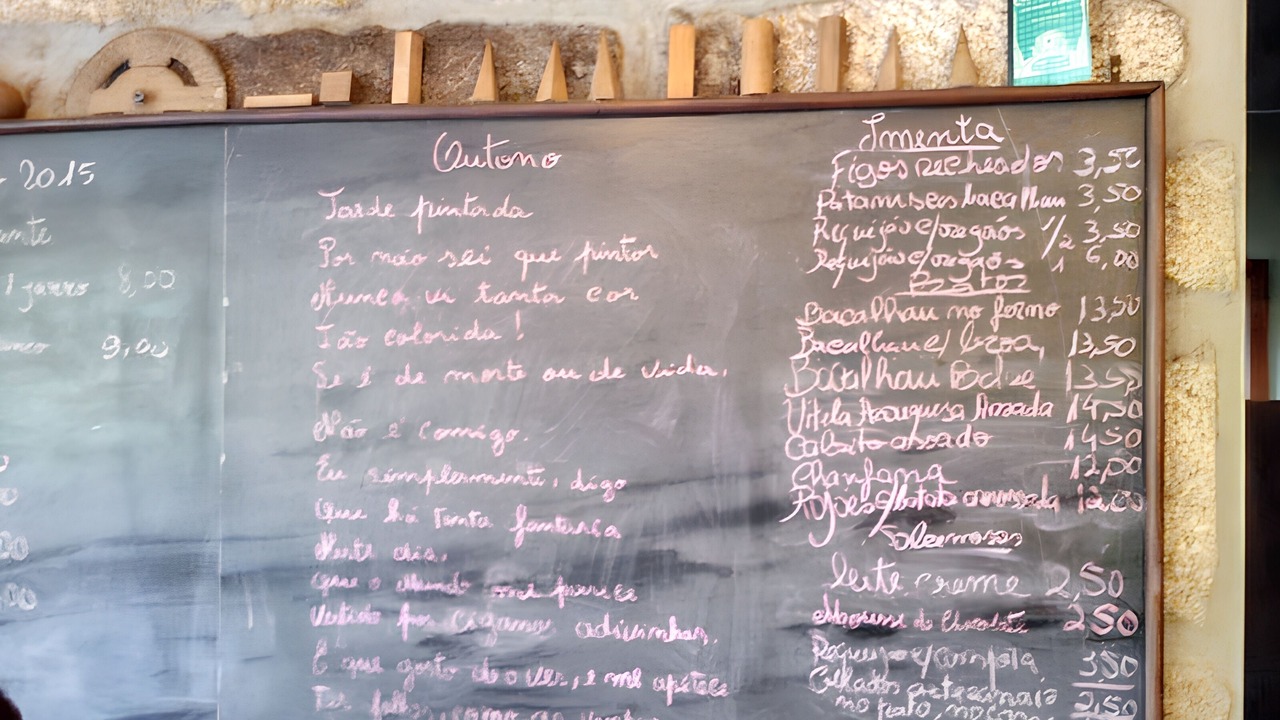 2015
1 jarro 8,00
9,00
Outono
Tarde pintada
Por não sei que pintor
Nunca vi tanta cor
Tão colorida!
Se é de morte ou de vida,
Não é comigo.
Eu simplesmente, digo
Que há tanta fantasia
Neste dia,
Que o Mundo me parece
Vestido por ciganas adivinhas,
E que gosto de o ver, e me apetece
Ter folhas, como as vinhas
Imenta
Figos recheados 3,50
Pataniscas bacalhau 3,50
Requeijão c/oregãos 1/2 3,50
Requeijão c/oregãos 1 6,00
Pratos
Bacalhau no forno 13,50
Bacalhau c/ broa, 13,50
Bacalhau 13,50
Vitela Arouquesa Assada 14,50
Cabrito assado 14,50
Chanfana 12,00
Rojões c/batata 12,00
Sobremesas
leite creme 2,50
Mousse de Chocolate 2,50
Requeijão c/compota 3,50
Gelados artesanais 2,50
no pato, no